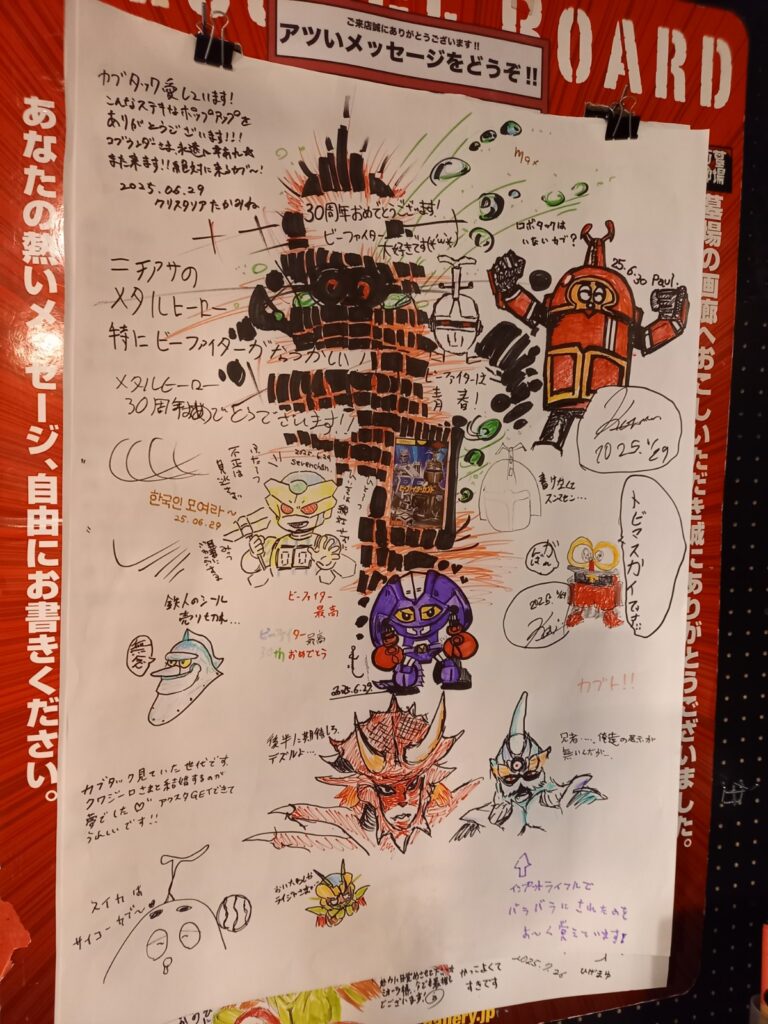 BOARD
ご来店誠にありがとうございます!!
アツいメッセージをどうぞ!!
あなたの熱いメッセージ、自由にお書きください。
墓場の画廊へおこしいただき誠にありがとうございました。
カブタック愛しています!
こんなステキなポップアップを
ありがとうございます!!!
また来ます!!絶対に来るカブ〜!
2025.06.29
クリスタリア たかみね
30周年おめでとうございます!
ビーファイター
大好きです
Max
ロボタックは
いないカブ?
25.6.30 Paul.
ニチアサの
メタルヒーロー
特にビーファイターがなつかしい!
メタルヒーロー
30周年おめでとうございます!!
ビーファイターは
青春!
2025.6/29
2025.6.29
sevenchan.
한국인 모여라~
25.06.29
トビマスカイです
がばーん
2025.6/29
鉄人のシール
売り切れ…
無念
ビーファイター
最高
ビーファイター最高
30th おめでとう
2025.6.29
カブト!!
後半に期待しろ、
デズルよ…
兄者……俺達の展示が
無いんだが…
カブタック見ていた世代です。
クワジーロさまと結婚するのが
夢でした♡ アクスタGETできて
うれしいです!!
スイカは
サイコーカブ〜
インプットライフルで
バラバラにされたのを
よ〜く覚えています!
かっこよくて
すきです
gallery.jp